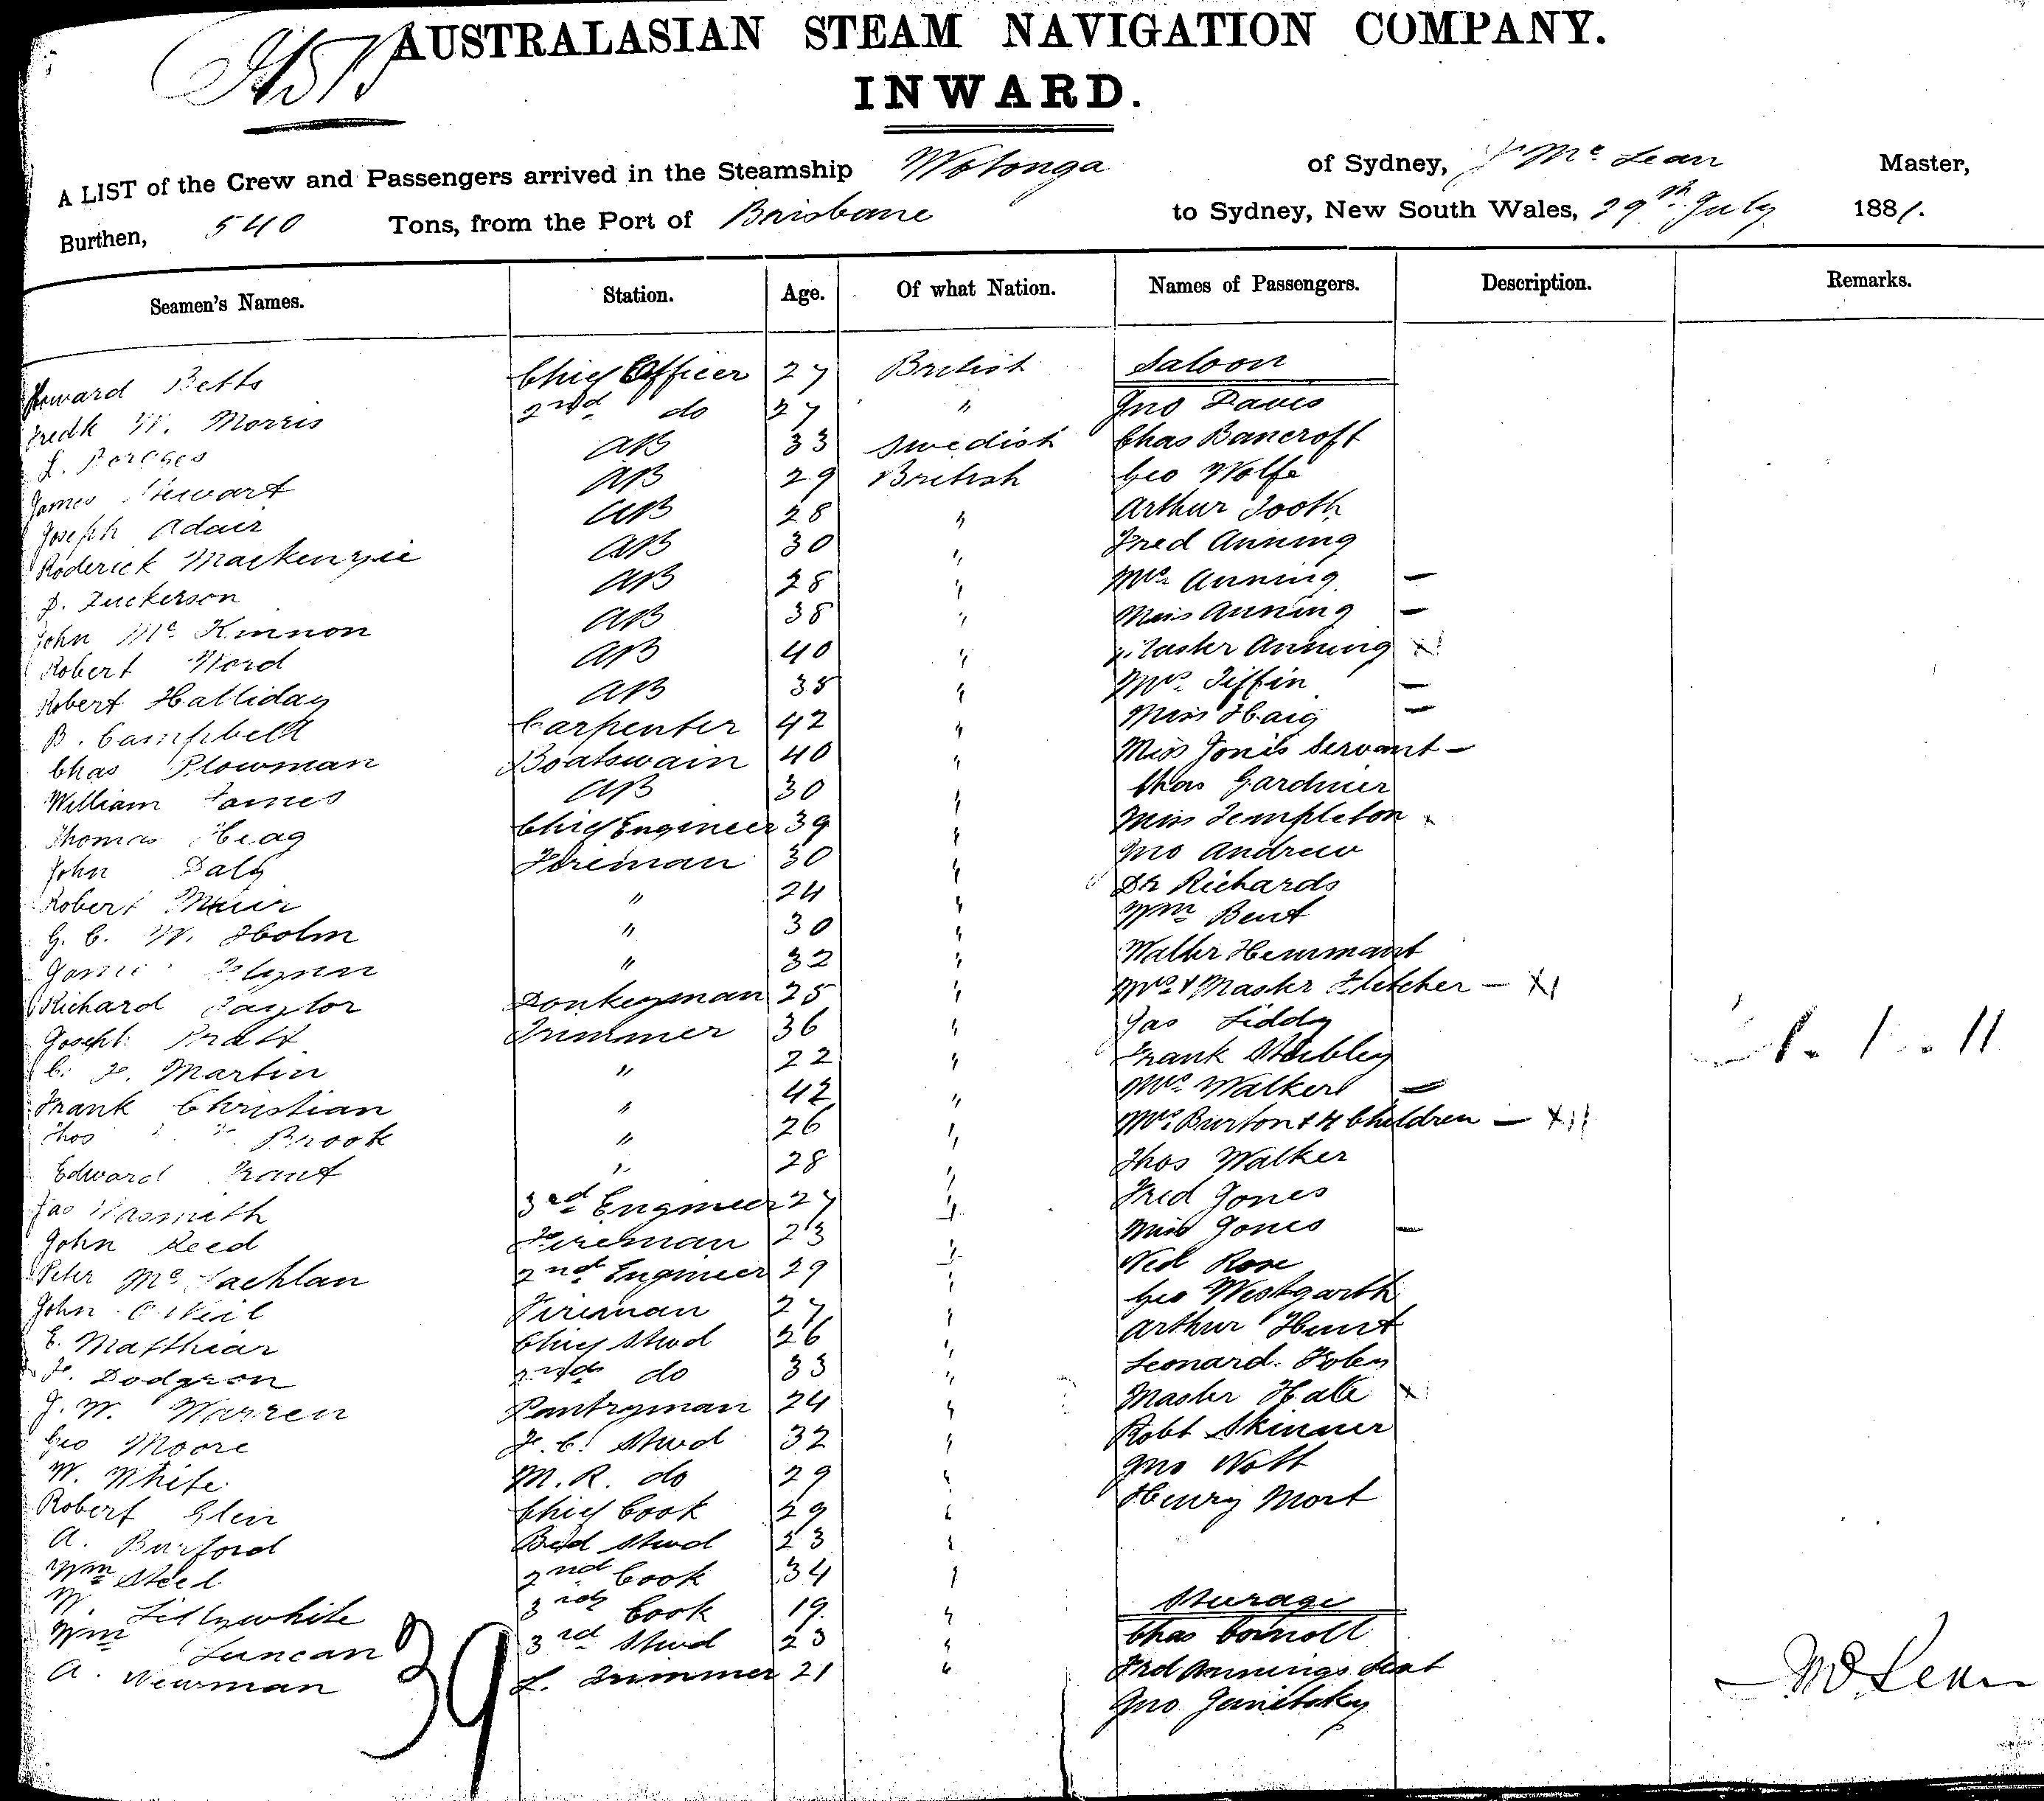 AUSTRALASIAN STEAM NAVIGATION COMPANY.
INWARD.
A LIST of the Crew and Passengers arrived in the Steamship Wotonga of Sydney, J Mc Lean Master,
Burthen, 540 Tons, from the Port of Brisbane to Sydney, New South Wales, 29th July 1881.
Seamen's Names. Station. Age. Of what Nation. Names of Passengers. Description. Remarks.
Howard Betts Chief Officer 27 British Saloon
Fredk W. Morris 2nd do 27 " Jno Davis
L. AB 33 Swedish Chas Bancroft
James Stewart AB 29 British Geo Wolfe
Joseph Adair AB 28 " Arthur Tooth
Roderick Mackenzie AB 30 " Fred Anning
AB 28 " Mrs Anning —
John Mc Kinnon AB 38 " Miss Anning —
Robert Word AB 40 " Master Anning x
Robert Halliday AB 38 " Mrs. Tiffin —
B. Campbell Carpenter 42 " Miss Haig —
Chas Plowman Boatswain 40 " Miss Jones Servant —
William James AB 30 " Chas Gardiner
Thomas Heag Chief Engineer 39 " Miss Templeton x
John Daly Fireman 30 " Jno Andrew
Robert Muir " 24 " Dr Richards
G. C. W. Holm " 30 " Wm Bent
James Flynn " 32 " Walter Hemmant
Richard Taylor Donkeyman 25 " Mrs & Master Fletcher — x1
Joseph Pratt Trimmer 36 " Jas Liddy
C. F. Martin " 22 " Frank Stubley
Frank Christian " 42 " Mrs. Walker —
Thos Brook " 26 " Mrs. Burton & 4 Children — x11
Edward Grant " 28 " Thos Walker
Jas Nasmith 3rd Engineer 27 " Fred Jones
John Reed Fireman 23 " Miss Jones —
Peter Mc Lachlan 2nd Engineer 29 " Ned Rose
John O'Neil Fireman 27 " Geo Westgarth
E. Matthias Chief Stwd 26 " Arthur Hunt
F. Dodgson 2nd do 33 " Leonard Foley
J. W. Warren Pantryman 24 " Master Hale x
Geo Moore F. C. Stwd 32 " Robt Skinner
W. White M. R. do 29 " Jno Nott
Robert Glen Chief Cook 29 " Henry Mort
A. Burford Bed Stwd 23 "
Wm Steel 2nd Cook 34 "
W. Lillywhite 3rd Cook 19 " Steerage
Wm Luncan 3rd Stwd 23 " Chas
A. Newman Trimmer 21 " Fred Annings
Jno
39
Mc Lean